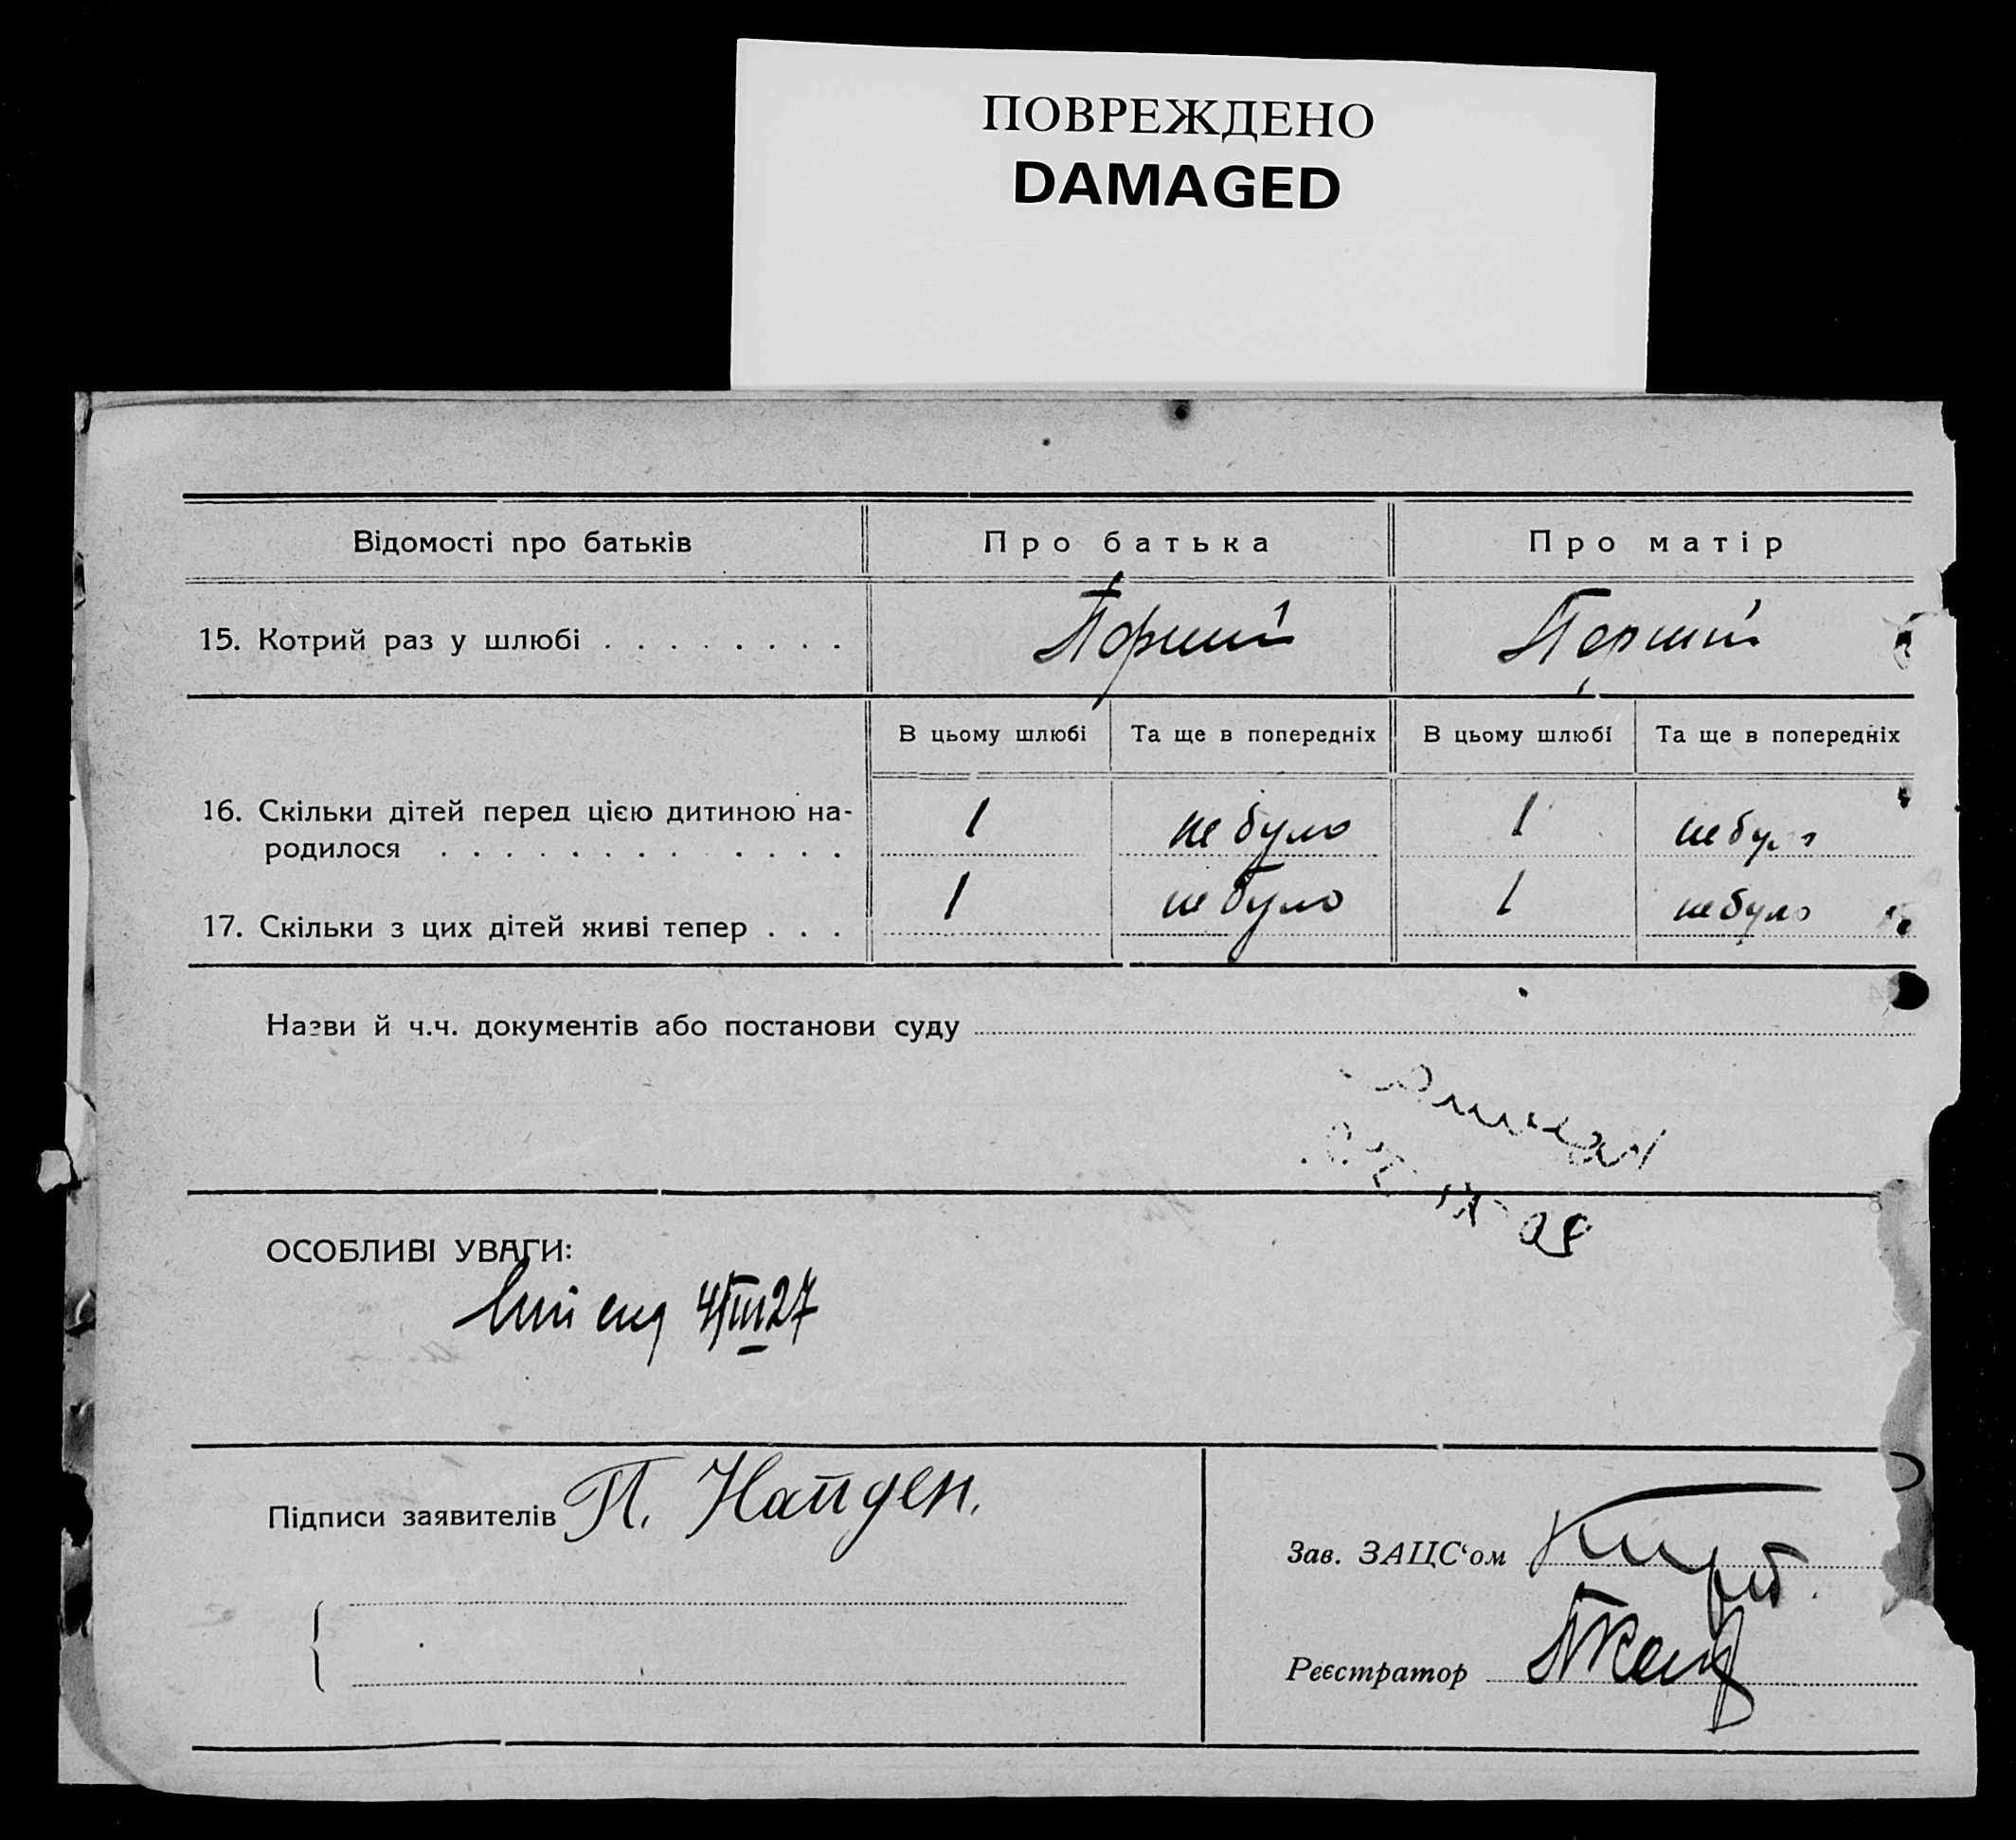 ПОВРЕЖДЕНО
DAMAGED
Відомості про батьків Про батька Про матір
15. Котрий раз у шлюбі . . . . . . . . Перший Перший
В цьому шлюбі Та ще в попередніх В цьому шлюбі Та ще в попередніх
16. Скільки дітей перед цією дитиною на-
родилося . . . . . . . . . . . . . 1 не було 1 не було
17. Скільки з цих дітей живі тепер . . . 1 не було 1 не було
Назви й ч.ч. документів або постанови суду
ОСОБЛИВІ УВАГИ:
4/III 27
Підписи заявителів П. Найден.
Зав. ЗАЦС‘ом
Реєстратор